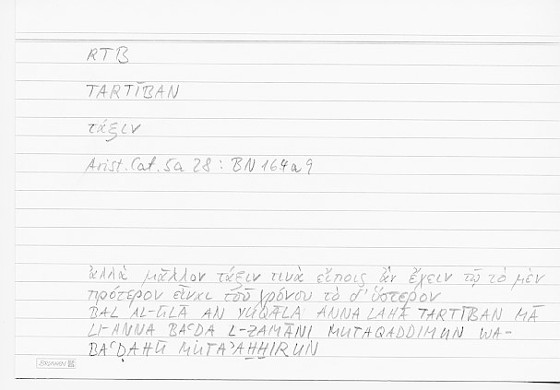 RTB
TARTĪBAN
τάξιν
Arist. Cat. 5a 28 : BN 164a9
ἀλλὰ μᾶλλον τάξιν τινὰ εἴποις ἂν ἔχειν τῷ τὸ μὲν
πρότερον εἶναι τοῦ χρόνου τὸ δ' ὕστερον
BAL AL-ŪLĀ AN YUQĀLA ANNA LAHĀ TARTĪBAN MĀ
LI-ANNA BAʿḌA L-ZAMĀNI MUTAQADDIMUN WA-
BAʿḌAHŪ MUTAʾAḪḪIRUN